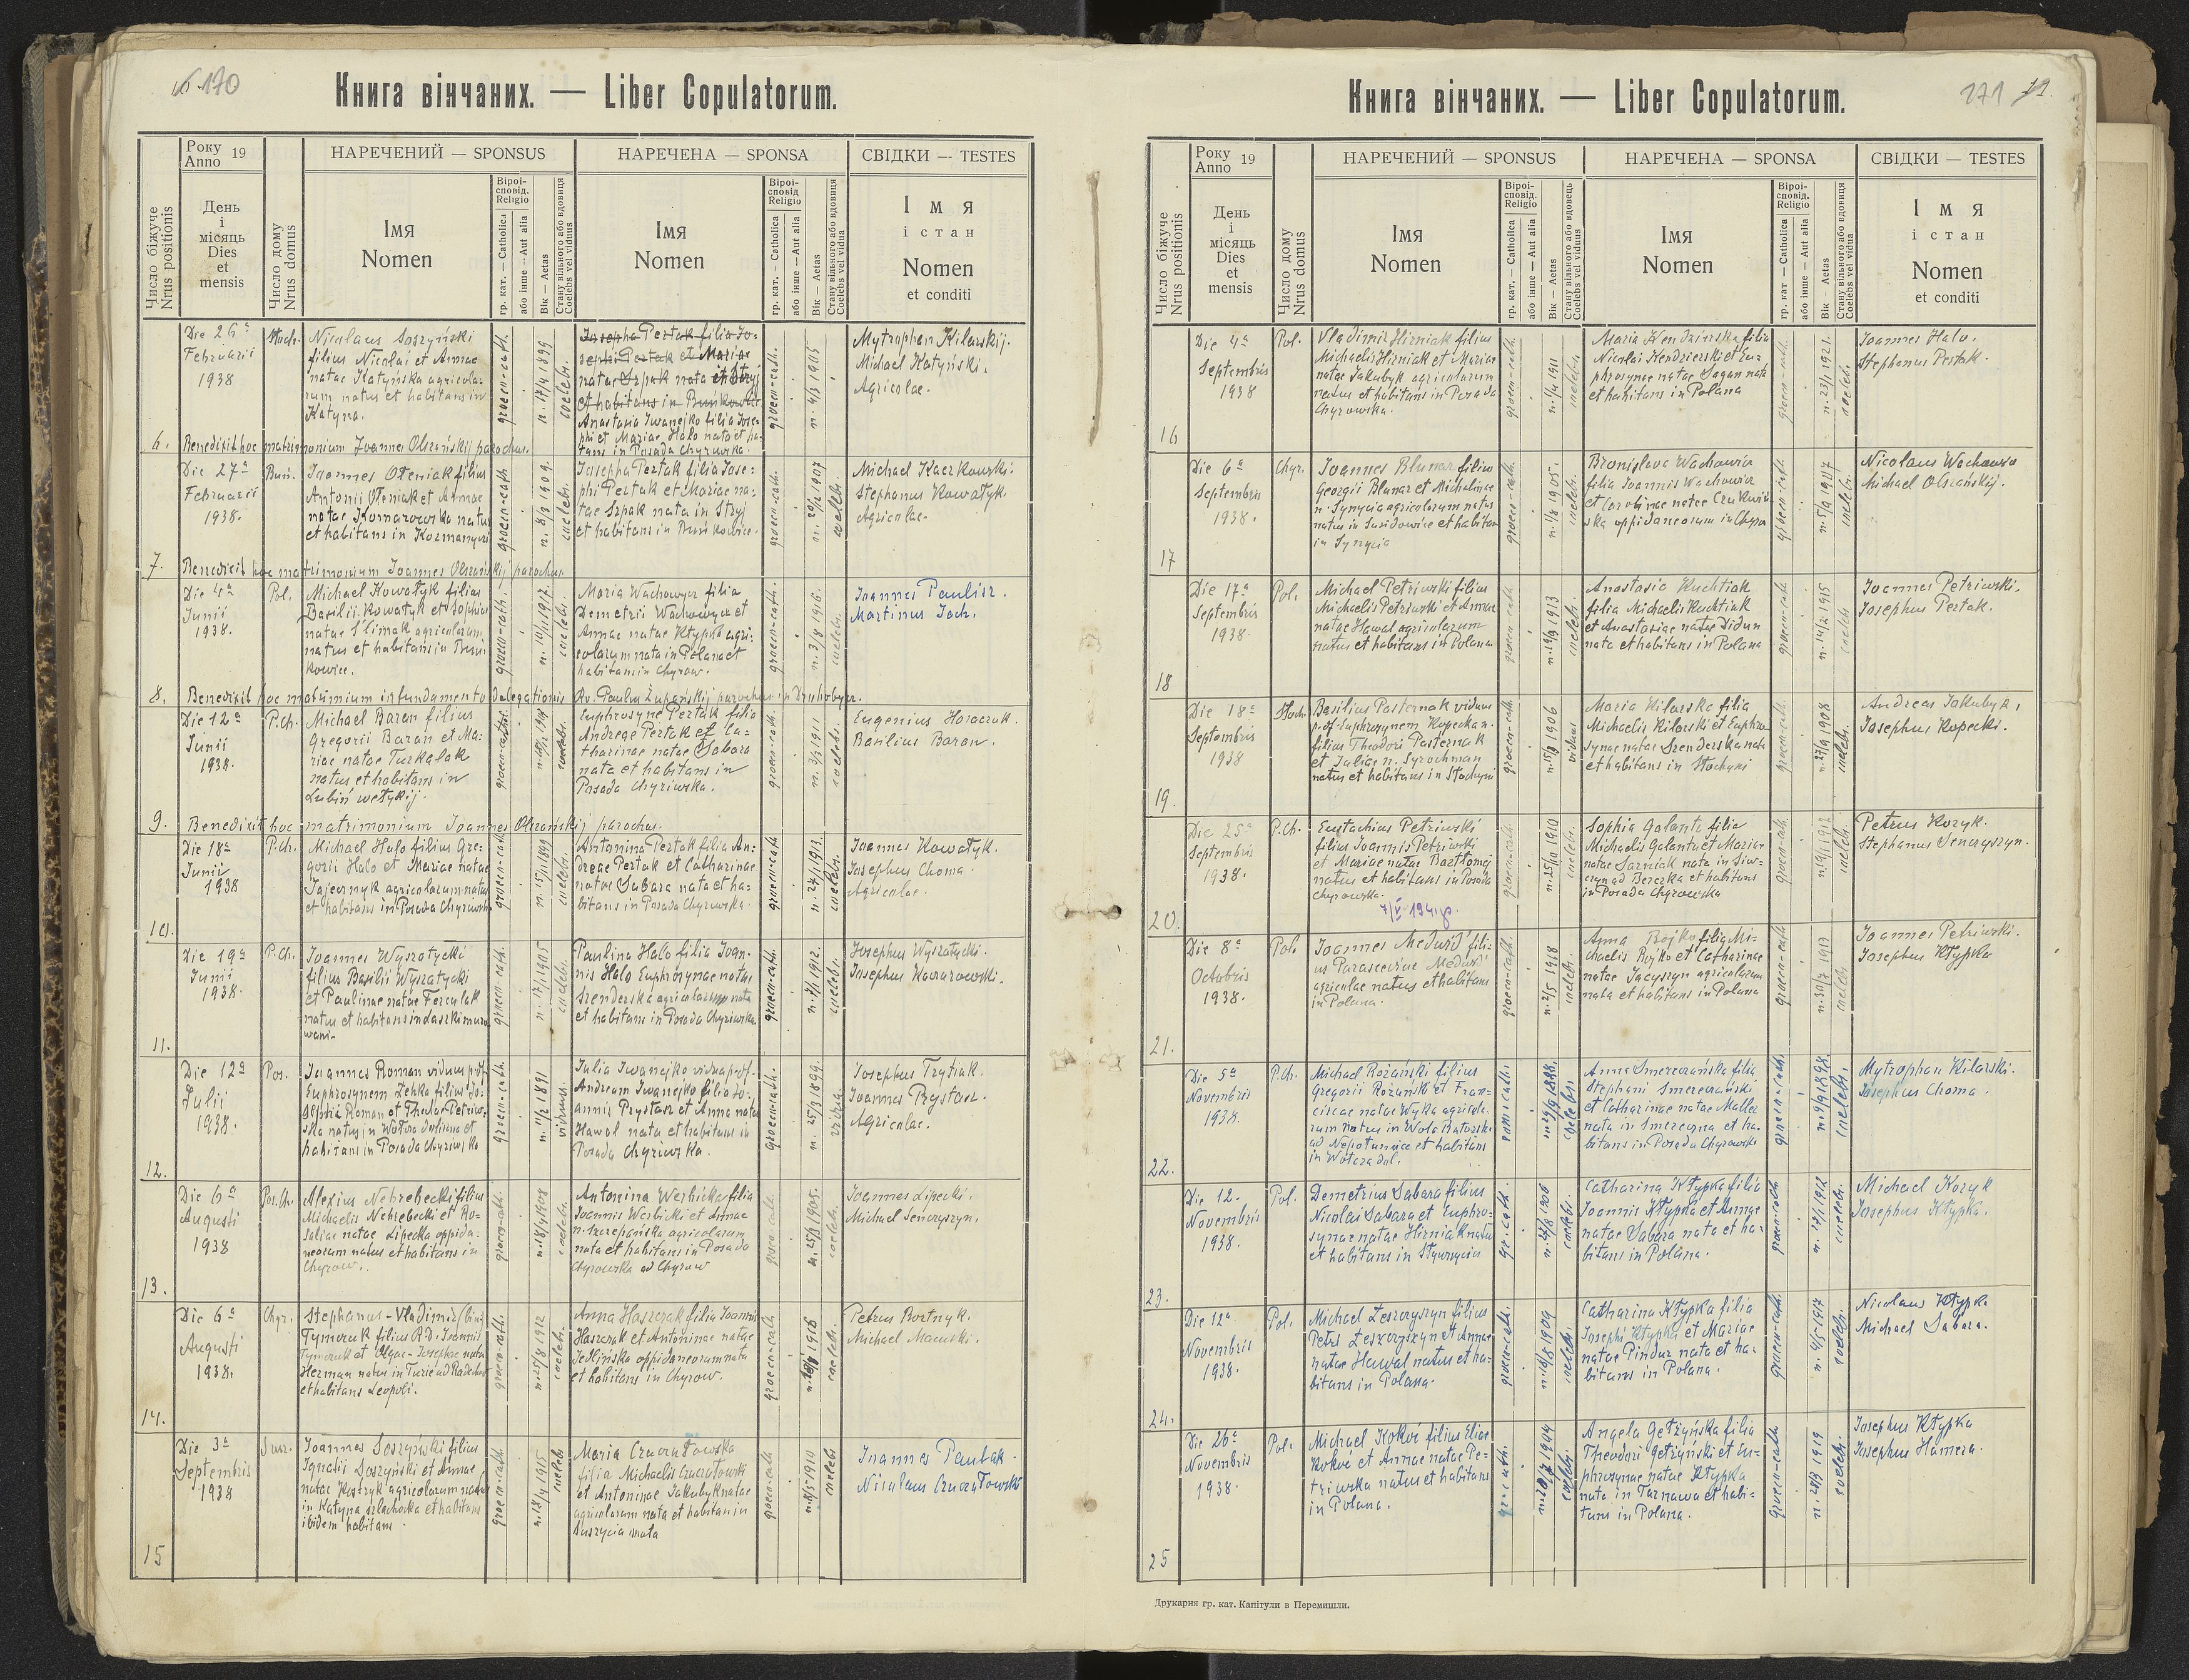 170
Книга вінчаних. — Liber Copulatorum.
Число біжуче
Nrus positionis
Року
Anno 19
День
і
місяць
Dies
et
mensis
Число дому
Nrus domus
НАРЕЧЕНИЙ — SPONSUS
Імя
Nomen
Віроі-
сповід.
Religio
гр. кат. — Catholica
або інше — Aut alia
Вік — Aetas
Стану вільного або вдовиця
Coelebs vel viduus
НАРЕЧЕНА — SPONSA
Імя
Nomen
Віроі-
сповід.
Religio
гр. кат. — Catholica
або інше — Aut alia
Вік — Aetas
Стану вільного або вдовиця
Coelebs vel vidua
СВІДКИ — TESTES
Імя
і стан
Nomen
et conditi
6.
Die 26a
Februarii
1938
Stoch.
Nicolaus Soszyński
filius Nicolai et Annae
natae Katyńska agricola-
rum natus et habitans in
Katyna.
graeco-cath.
n. 17/4 1899
coelebs
Josepha Pertak filia Jo-
sephi Pertak et Mariae
natae Szpak nata et Stryj
et habitans in Buńkowice
Anastasia Iwanejko filia Jose-
phi et Mariae Halo nata et ha-
tans in Posada Chyrowska.
graeco-cath.
n. 4/3 1905
Mytrophan Kilarskij.
Michael Katyński.
Agricolae.
Benedixit hoc matrimonium Joannes Olszańskij parochus.
7.
Die 27a
Februarii
1938.
Buń.
Joannes Oteniak filius
Antonii Oteniak et Annae
natae Komarowska natus
et habitans in
graeco-cath
n. 8/3 1909.
coelebs.
Josepha Pertak filia Jose-
phi Pertak et Mariae na-
tae Szpak nata in Stryj
et habitans in Buńkowice.
graeco-cath.
n. 20/2 1907
coelebs
Michael Kaczkowski.
Stephanus Kowałyk.
Agricolae.
Benedixit hoc matrimonium Joannes Olszańskij parochus.
8.
Die 4a
Junii
1938.
Pol.
Michael Kowałyk filius
Basilii Kowałyk et Sophiae
natae Slimak agricolarum
natus et habitans in Buń
kowice.
graeco-cath.
n. 10/11 1917.
coelebs.
Maria Wachowycz filia
Demetrii Wachowycz et
Annae natae Kłypka agri-
colarum nata in Polana et
habitans in Chyrow.
graeco-cath.
n. 3/8 1916.
coelebs.
Joannes Paulisz.
Martinus Joch.
Benedixit hoc matrimonium in fundamento delegationis Rv. Paulus Żupańskij parochus in Druhobycz.
9.
Die 12a
Junii
1938.
P.Ch.
Michael Baran filius
Gregorii Baran et Ma-
riae natae Turkalak
natus et habitans in
Lubiń wełykij.
graeco-cathol.
coelebs.
Euphrosyne Pertak filia
Andreae Pertak et Ca-
tharinae natae Sabara
nata et habitans in
Posada Chyriwska.
graeco-cath.
n. 3/3 1911
coelebs.
Eugenius Horaczuk.
Basilius Baran.
Benedixit hoc matrimonium Joannes Olszańskij parochus.
10.
Die 18a
Junii
1938
P.Ch.
Michael Halo filius Gre-
gorii Halo et Mariae natae
Jajecznyk agricolarum natus
et habitans in Posada Chyriwsk
graeco-cath
n. 15/11 1899
coelebs.
Antonina Pertak filia An-
dreae Pertak et Catharinae
natae Sabara nata et ha-
bitans in Posada Chyrowska.
graeco-cath
n. 24/1 1913.
coelebs.
Joannes Kowałyk.
Josephus Choma.
Agricolae.
11.
Die 19a
Junii
1938.
P.Ch.
Joannes Wyszatycki
filius Basilii Wyszatycki
et Paulinae natae Fercalak
natus et habitans in Laszki muro
wani-
graeco-cath.
n. 17/1 1905
coelebs.
Paulina Halo filia Joan-
nis Halo Euphrosynae natae
Szenderska agricolarum nata
et habitans in Posada Chyriwska.
graeco-cath.
n. 8/1 1912.
coelebs.
Josephus Wyszatycki.
Josephus Kaczarowski.
12.
Die 12a
Julii
1938.
Pos.
Joannes Roman viduus p.def.
Euphrosynem Zehka filius Jo-
sephi Roman et Theclae Petriw-
ska natus in Wołcza dolisna et
habitans in Posada Chyriwska
graeco-cath.
n. 11/2 1891
viduus.
Julia Iwanejko vidua p.def.
Andream Iwanejko filia Jo-
annis Prystasz et Anna natae
Hawal nata et habitans in
Posada Chyriwska.
graeco-cath.
n. 25/3 1899.
vidua.
Josephus Trytiak.
Joannes Prystasz.
Agricolae.
13.
Die 6a
Augusti
1938
Pos.Ch.
Alexius Nehrebecki filius
Michaelis Nehrebecki et Ro-
saliae natae Lipecka oppida-
neorum natus et habitans in
Chyrow.
graeco-cath.
n. 18/4 1908
coelebs.
Antonina Werbicka filia
Joannis Werbicki et Annae
n. Szczepańska agricolarum
nata et habitans in Posada
Chyrowska ad Chyrow
graeco-cath.
n. 25/3 1905.
coelebs.
Joannes Lipecki.
Michael Senczyszyn.
14.
Die 6a
Augusti
1938.
Chyr.
Stephanus-Vladimir (bin.)
Tymczuk filius RD. Joannis
Tymczuk et Olgae-Josephae natae
Herman natus in Turie ad Radechow
et habitans Leopoli.
graeco-cath.
n. 25/8 1912
coelebs.
Anna Haszczak filia Joannis
Haszczak et Antoninae natae
Jedlińska oppidaneorum nata
et habitans in Chyrow.
graeco-cath.
coelebs.
Petrus Bortnyk.
Michael Macuski.
15
Die 3a
Septembris
1938
Susz.
Joannes Soszyński filius
Ignatii Soszyński et Annae
natae Kostryk agricolarum natus
in Katyna szlachocka et habitans
ibidem habitans.
graeco-cath.
n. 18/4 1915
coelebs
Maria Czuczułowska
filia Michaelis Czuczułowski
et Antoninae Jakubyk natae
agricolarum nata et habitans in
Suszycia nata
graeco-cath
n. 8/5 1914
coelebs
Joannes Paulak.
Nicolaus Czuczułowski
171
Книга вінчаних. — Liber Copulatorum.
Число біжуче
Nrus positionis
Року
Anno 19
День
і
місяць
Dies
et
mensis
Число дому
Nrus domus
НАРЕЧЕНИЙ — SPONSUS
Імя
Nomen
Віроі-
сповід.
Religio
гр. кат. — Catholica
або інше — Aut alia
Вік — Aetas
Стану вільного або вдовець
Coelebs vel viduus
НАРЕЧЕНА — SPONSA
Імя
Nomen
Віроі-
сповід.
Religio
гр. кат — Catholica
або інше — Aut alia
Вік - Aetas
Стану вільного або вдовиця
Coelebs vel vidua
СВІДКИ — TESTES
Імя
і стан
Nomen
et conditi
16
Die 4a
Septembris
1938
Pol.
Vladimir Hirniak filius
Michaelis Hirniak et Mariae
natae Jakubyk agricolarum
natus et habitans in Posada
Chyrowska.
graeco-cath.
n. 1/4 1911
coelebs.
Maria Kendzierska filia
Nicolai Kendzierski et Eu-
phrosynae natae Sagan nata
et habitans in Polana
graeco-cath.
n. 23/1 1921.
coelebs.
Joannes Halo.
Stephanus Pertak.
17
Die 6a
Septembris
1938.
Chyr.
Joannes Blunar filius
Georgii Blunar et Michalinae
n. Synycia agricolarum natus
natus in Susidowice et habitans
in Synycia
graeco-cath.
n. 1/8 1905.
coelebs.
Bronislava Wachowicz
filia Joannis Wachowicz
et Carolinae natae
ska oppidaneorum in Chyrow
graeco-cath.
n. 5/9 1917
coelebs.
Nicolaus Wachowicz
Michael Olszańskij.
18
Die 17a
Septembris
1938.
Pol.
Michael Petriwski filius
Michaelis Petriwski et Annae
natae Hawal agricolarum
natus et habitans in Polana.
graeco-cath.
n. 19/9 1913
coelebs.
Anastasia Kuchtiak
filia Michaelis Kuchtiak
et Anastasiae natae Didun
nata et habitans in Polana
graeco-cath.
n. 14/2 1915
coelebs
Joannes Petriwski.
Josephus Pertak.
19.
Die 18a
Septembris
1938
Stoch.
Basilius Pasternak viduus
p.def. Euphrosynem Kopecka n.
filius Theodori Pasternak
et Juliae n. Syrochman
natus et habitans in Stochyni
graeco-cath.
n. 15/1 1906
viduus
Maria Kilarska filia
Michaelis Kilarski et Euphro-
synae natae Szenderska nata
et habitans in Stochyni
graeco-cath.
n. 27/9 1908
coelebs.
Andreas Jakubyk.
Josephus Kopecki.
20.
Die 25a
Septembris
1938.
P.Ch.
Eustachius Petriwski
filius Joannis Petriwski
et Mariae natae Bartłomej
natus et habitans in Posada
Chyrowska.
graeco-cath.
n. 25/11 1910
coelebs.
Sophia Galanta filia
Michaelis Galanta et Mariae
natae Sarniak nata in Siw-
czyn ad Berezka et habitans
in Posada Chyrowska
graeco-cath.
n. 19/1 1912
coelebs.
Petrus Kozyk.
Stephanus Senczyszyn.
21.
Die 8a
Octobris
1938.
Pol.
Joannes Meduśd fili-
us Parasceviae Meduśd
agricolae natus et habitans
in Polana.
graeco-cath.
n. 2/5 1918
coelebs.
Anna Bojko filia Mi-
chaelis Bojko et Catharinae
natae Jacyszyn agricolarum
nata et habitans in Polana
graeco-cath.
n. 30/7 1917
coelebs
Joannes Petriwski.
Josephus Kłypka
22.
Die 5a
Novembris
1938.
P.Ch.
Michael Rożański filius
Gregorii Rożański et Fran-
ciscae natae Wyka agricola-
rum natus in Wola Batorska
ad Niepołomice et habitans
in Wołcza dol.
rom.cath.
n. 29/9 1888.
coelebs.
Anna Smereczańska filia
Stephani Smereczański
et Catharinae natae Mallec
nata in Smereczna et ha-
bitans in Posada Chyrowska
graeco-cath.
n. 9/9 1898.
coelebs.
Mytrophan Kilarski.
Josephus Choma.
23.
Die 12.
Novembris
1938.
Pol.
Demetrius Sabara filius
Nicolai Sabara et Euphro-
synae natae Hirniak natus
et habitans in
gr. cath.
n. 4/8 1906
coelebs
Catharina Kłypka filia
Joannis Kłypka et Annae
natae Sabara nata et ha-
bitans in Polana.
graeco-cath
n. 17/1 1912
coelebs.
Michael Kozyk
Josephus Kłypka.
24.
Die 12a
Novembris
1938.
Pol.
Michael Leszczyszyn filius
Petri Leszczyszyn et Annae
natae Hawal natus et ha-
bitans in Polana.
graeco-cath.
n. 16/8 1909
coelebs.
Catharina Kłypka filia
Josephi Kłypka et Mariae
natae Pindus nata et ha-
bitans in Polana.
graeco-cath.
n. 4/5 1917
coelebs.
Nicolaus Kłypka
Michael Sabara.
25
Die 26a
Novembris
1938.
Pol.
Michael Kokoć filius Eliae
Kokoć et Annae natae Pe-
triwska natus et habitans
in Polana.
gr. cath.
coelebs.
Angela Gełżyńska filia
Theodori Gełżyński et Eu-
phrosynae natae Kłypka
nata in Tarnawa et habi-
tans in Polana.
graeco-cath
n. 28/3 1919
coelebs.
Josephus Kłypka
Josephus Hamera.
Друкарня гр. кат. Капітули в Перемишли.